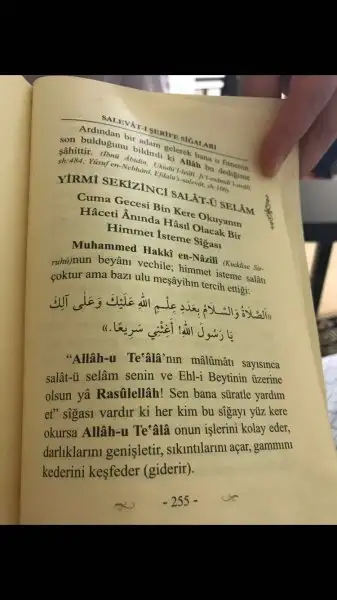 SALEVÂT-I ŞERÎFE SÎĞALARI
Ardından bir adam gelerek bana o fitnenin
son bulduğunu bildirdi ki Allâh bu dediğime
şâhittir. (İbnü Âbidîn,
sh:484; Yûsuf en-Nebhânî, Efdalu's-salevât, sh:108)
YİRMİ SEKİZİNCİ SALÂT-Ü SELÂM
Cuma Gecesi Bin Kere Okuyanın
Hâceti Ânında Hâsıl Olacak Bir
Himmet İsteme Sîğası
Muhammed Hakkî en-Nâzilî (Kuddise Sir-
ruhû)nun beyânı vechile; himmet isteme salâtı
çoktur ama bazı ulu meşâyihın tercih ettiği:
«اَلصَّلَاةُ وَالسَّلَامُ بِعَدَدِ عِلْمِ اللهِ عَلَيْكَ وَعَلَى آلِكَ
يَا رَسُولَ اللهِ! أَغِثْنِي سَرِيعًا.»
“Allâh-u Te'âlâ'nın mâlûmâtı sayısınca
salât-ü selâm senin ve Ehl-i Beytinin üzerine
olsun yâ Rasûlellâh! Sen bana süratle yardım
et” sîğası vardır ki her kim bu sîğayı yüz kere
okursa Allâh-u Te'âlâ onun işlerini kolay eder,
darlıklarını genişletir, sıkıntılarını açar, gammını
kederini keşfeder (giderir).
- 255 -